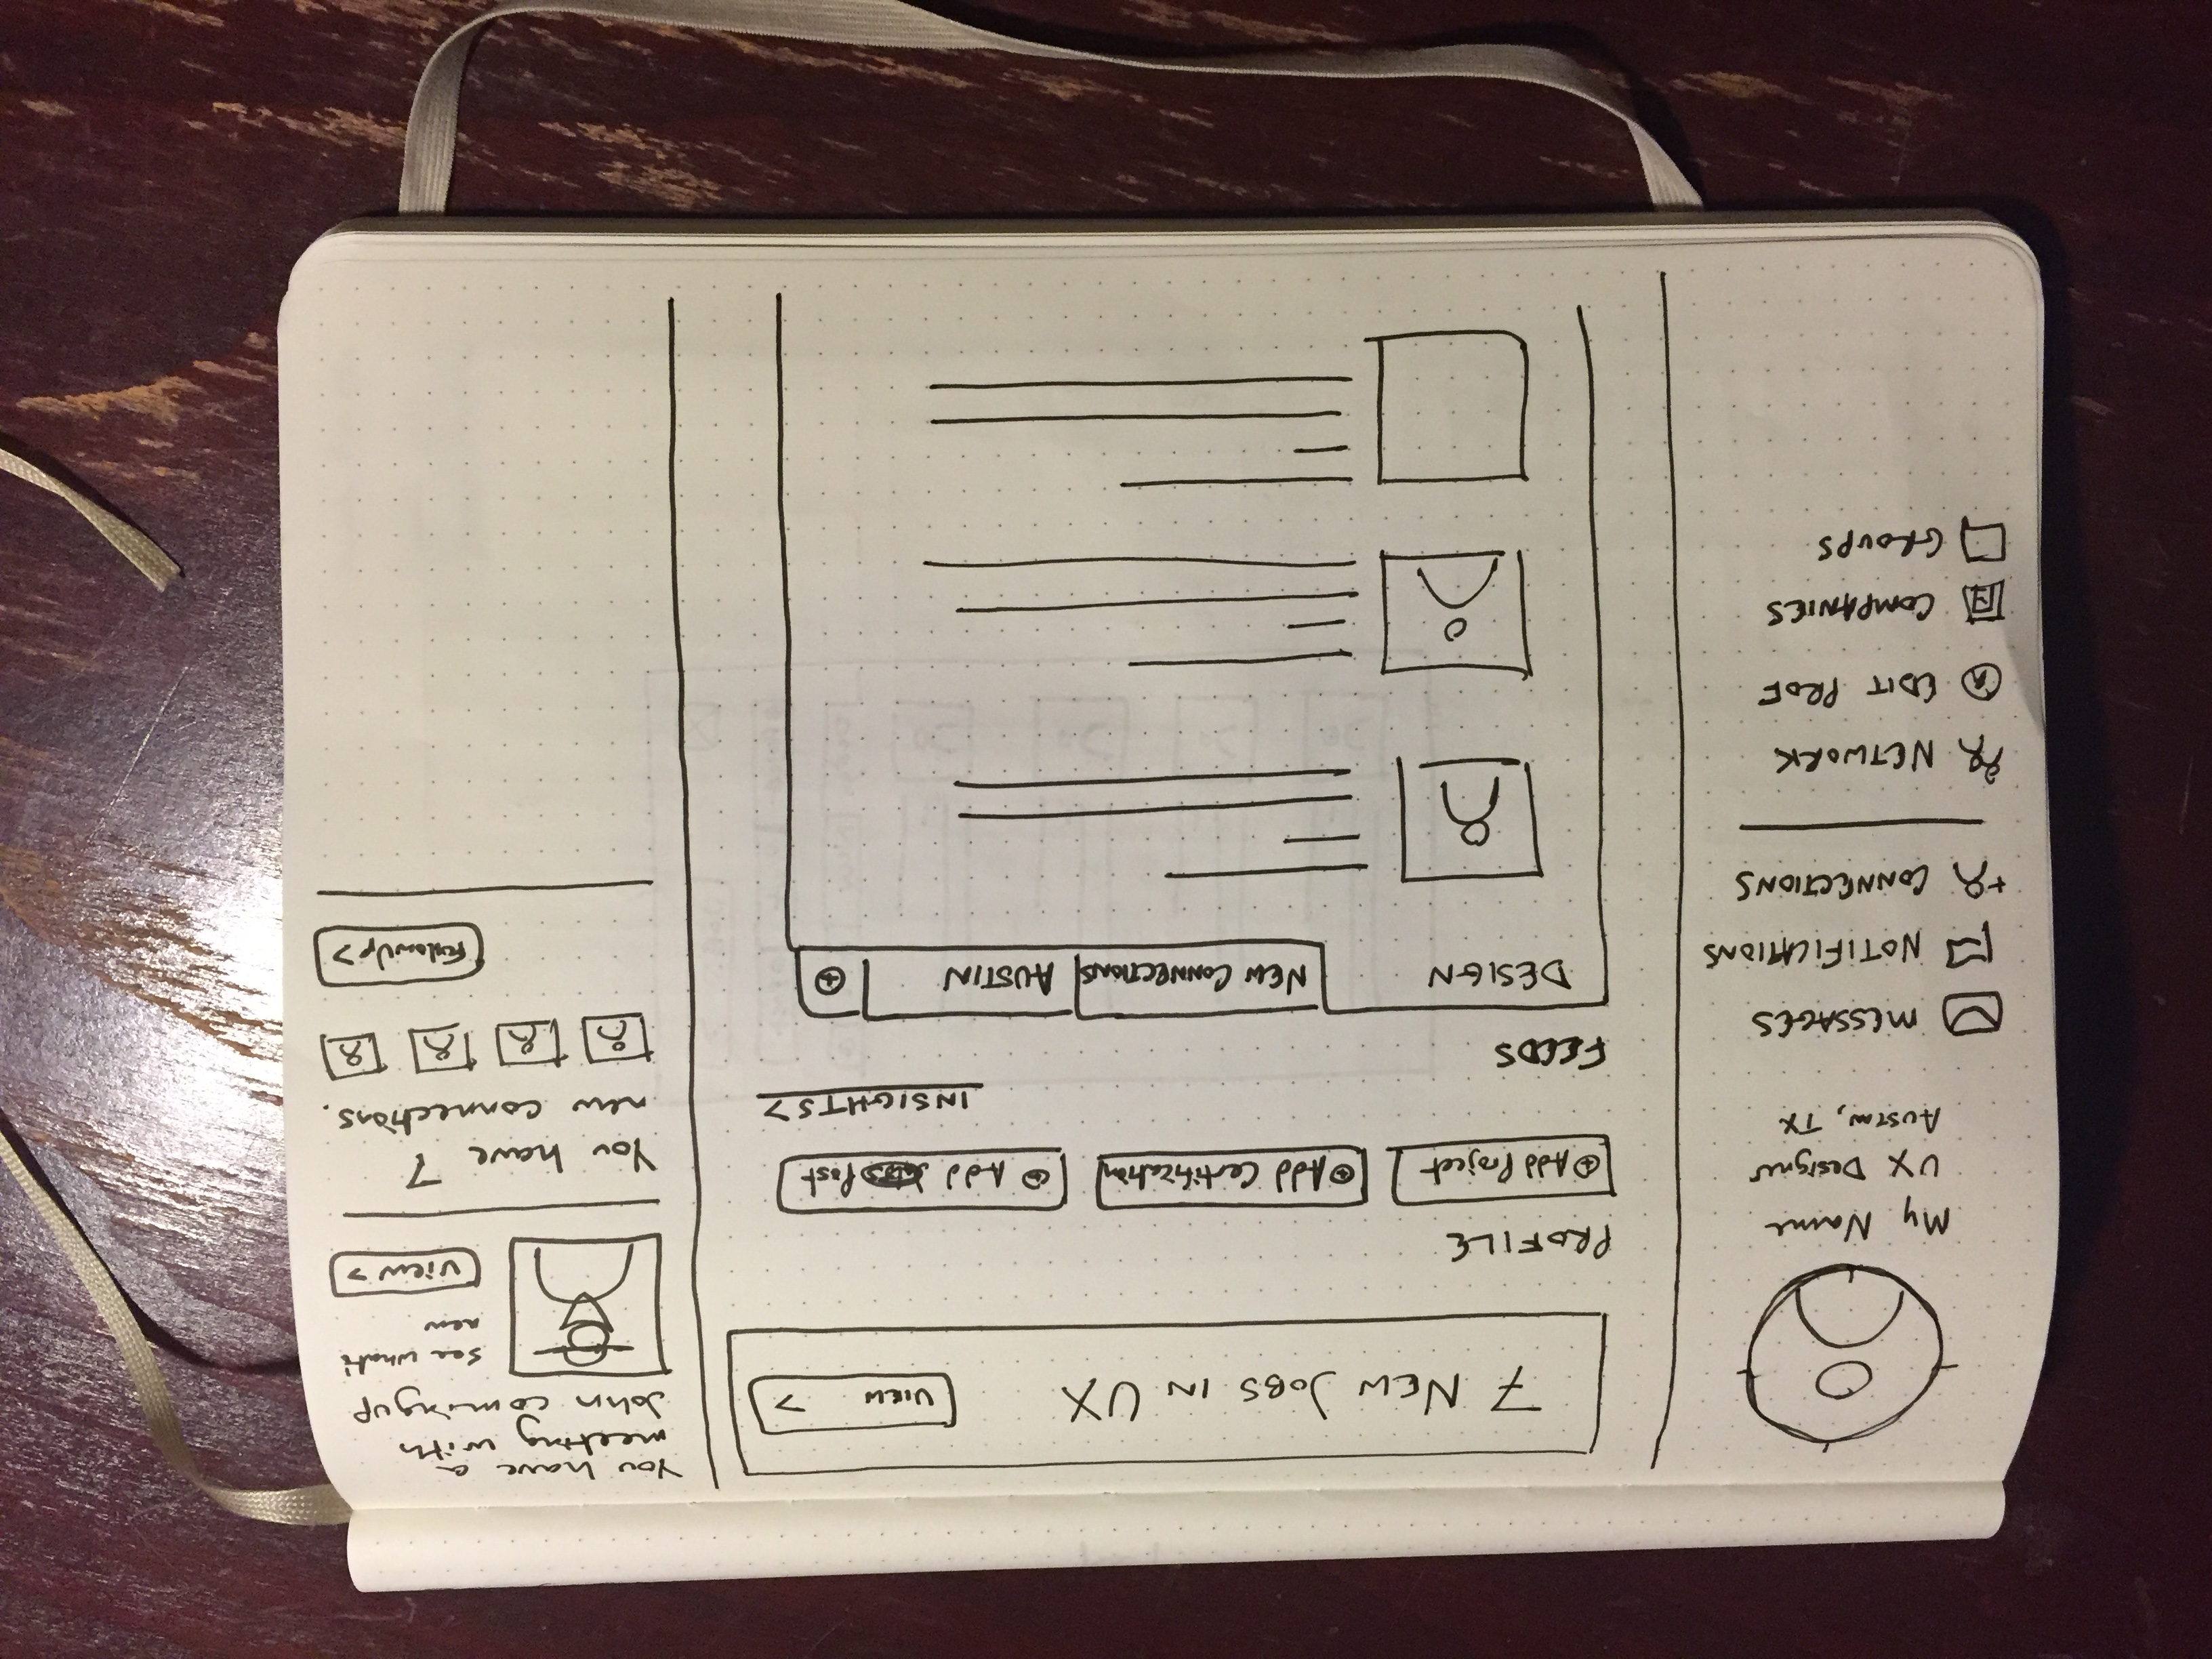 My Name
UX Designer
Austin, TX
MESSAGES
NOTIFICATIONS
CONNECTIONS
NETWORK
EDIT PROF
COMPANIES
GROUPS
7 NEW JOBS IN UX
VIEW >
PROFILE
+ Add Project
+ Add Certification
+ Add Post
INSIGHTS >
FEEDS
DESIGN
NEW CONNECTIONS
AUSTIN
+
You have a
meeting with
John coming up
see what's
new
VIEW >
You have 7
new connections.
Follow Up >